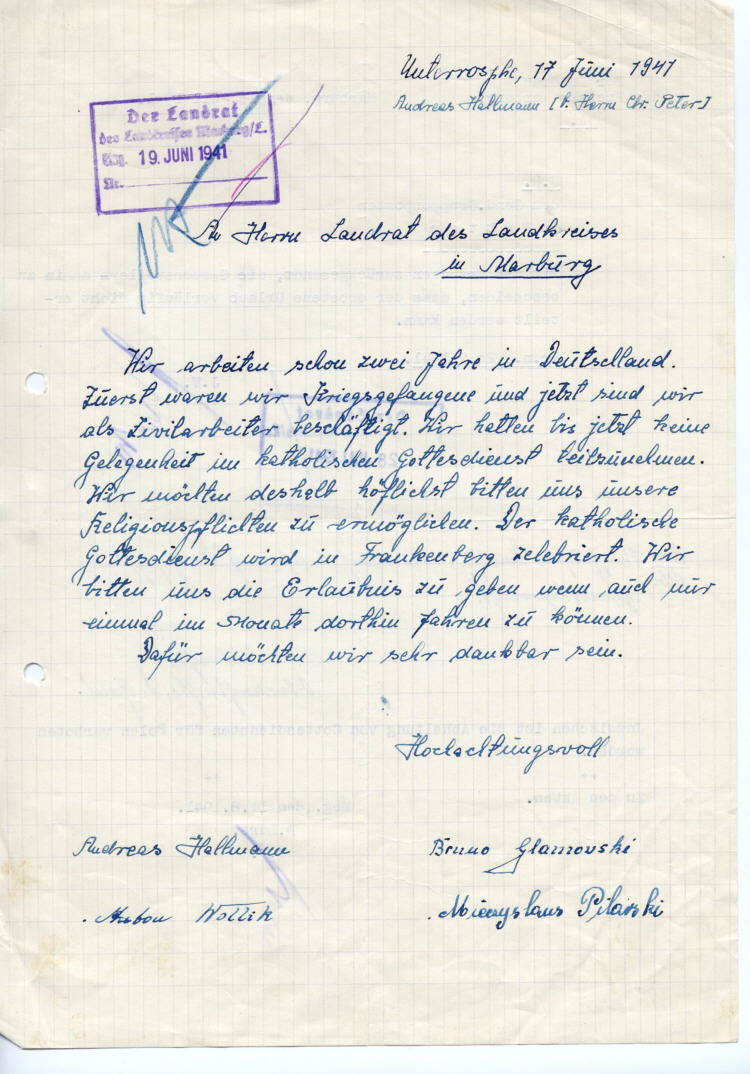 Unterrosphe, 17 Juni 1941
Andreas Hallmann [b. Herrn Chr. Peter]
Der Landrat
des Landkreises Marburg/L.
Eing. 19. JUNI 1941
Nr.
An Herrn Landrat des Landkreises
in Marburg
Wir arbeiten schon zwei Jahre in Deutschland.
Zuerst waren wir Kriegsgefangene und jetzt sind wir
als Zivilarbeiter beschäftigt. Wir hatten bis jetzt keine
Gelegenheit im katholischen Gottesdienst teilzunehmen.
Wir möchten deshalb höflichst bitten uns unsere
Religionspflichten zu ermöglichen. Der katholische
Gottesdienst wird in Frankenberg zelebriert. Wir
bitten uns die Erlaubnis zu geben wenn auch nur
einmal im Monate dorthin fahren zu können.
Dafür möchten wir sehr dankbar sein.
Hochachtungsvoll
Andreas Hallmann
Bruno Glamovski
Wollik
Mieczyslaus Pilarski